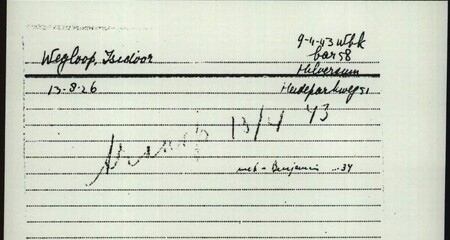 Wegloop, Isidoor
9-4-43 Wbk
bar 58
Hilversum
13-8-26
Heideparkweg 51
13/4 43
Benjamin